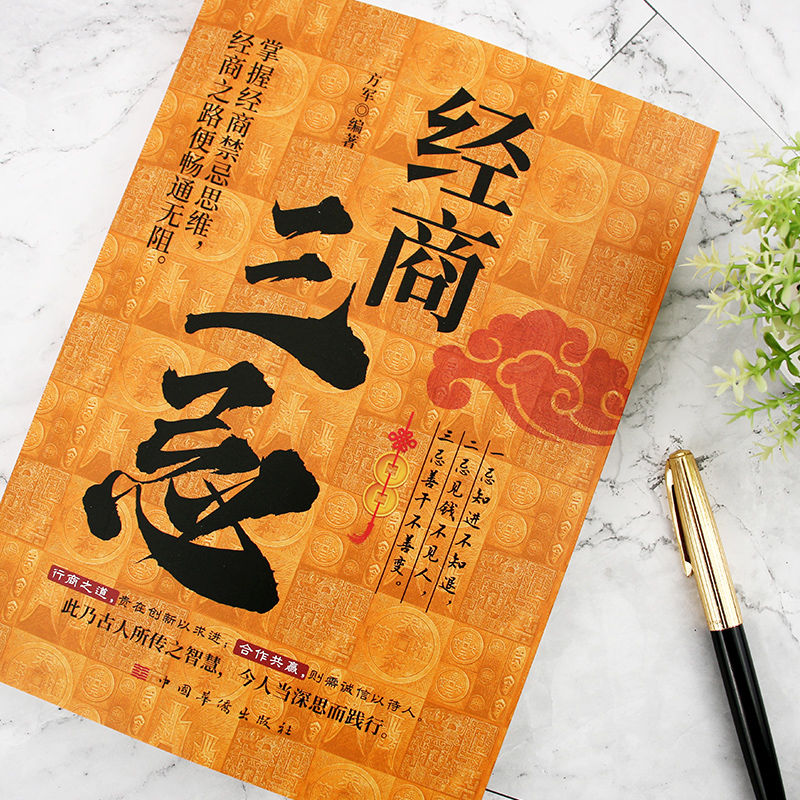 经商
三忌
方军◎编著
掌握经商禁忌思维，
经商之路便畅通无阻。
一忌知进不知退，
二忌见钱不见人，
三忌善干不善变。
行商之道，贵在创新以求进；合作共赢，则需诚信以待人。
此乃古人所传之智慧，今人当深思而践行。
中国华侨出版社